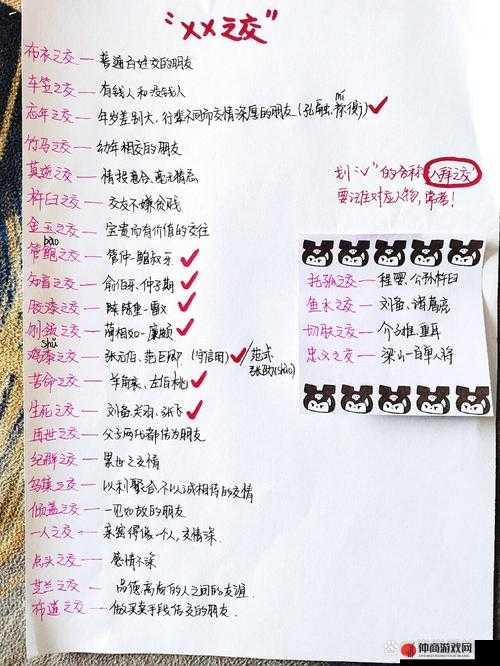 “XX之交”
布衣之交——普通百姓交的朋友
车笠之交——有钱人和没钱人
忘年之交——年岁差别大,行辈不同而交情深厚的朋友(孔融、祢衡)✓
mí
竹马之交——幼年相交的朋友
莫逆之交——情投意合、毫无猜忌
杵臼之交——交友不嫌贫贱
金玉之交——宝贵而有价值的交往
bào
管鲍之交——管仲-鲍叔牙✓
知音之交——俞伯牙、仲子期✓
胶漆之交——陈重-雷义✓
刎颈之交——蔺相如-廉颇✓
shǔ
鸡黍之交——张元伯、范巨卿(守信用)✓范式
张劭(shào)
舍命之交——羊角哀、左伯桃✓
生死之交——刘备、关羽、张飞✓
再世之交——父子两代都结为朋友
纪群之交——累世之交情
乌集之交——以利聚合,不以诚相待的交情
倾盖之交——一见如故的朋友
一人之交——亲密得像一个人,交情深
点头之交——感情不深
芝兰之交——品德高尚的人之间的友谊
市道之交——做买卖手段结交的朋友
划“✓”的合称八拜之交
要记住对应人物,常考!
托孤之交——程婴、公孙杵臼
鱼水之交——刘备、诸葛亮
切肤之交——介子推、重耳
忠义之交——梁山一百单八将
仲商游戏网